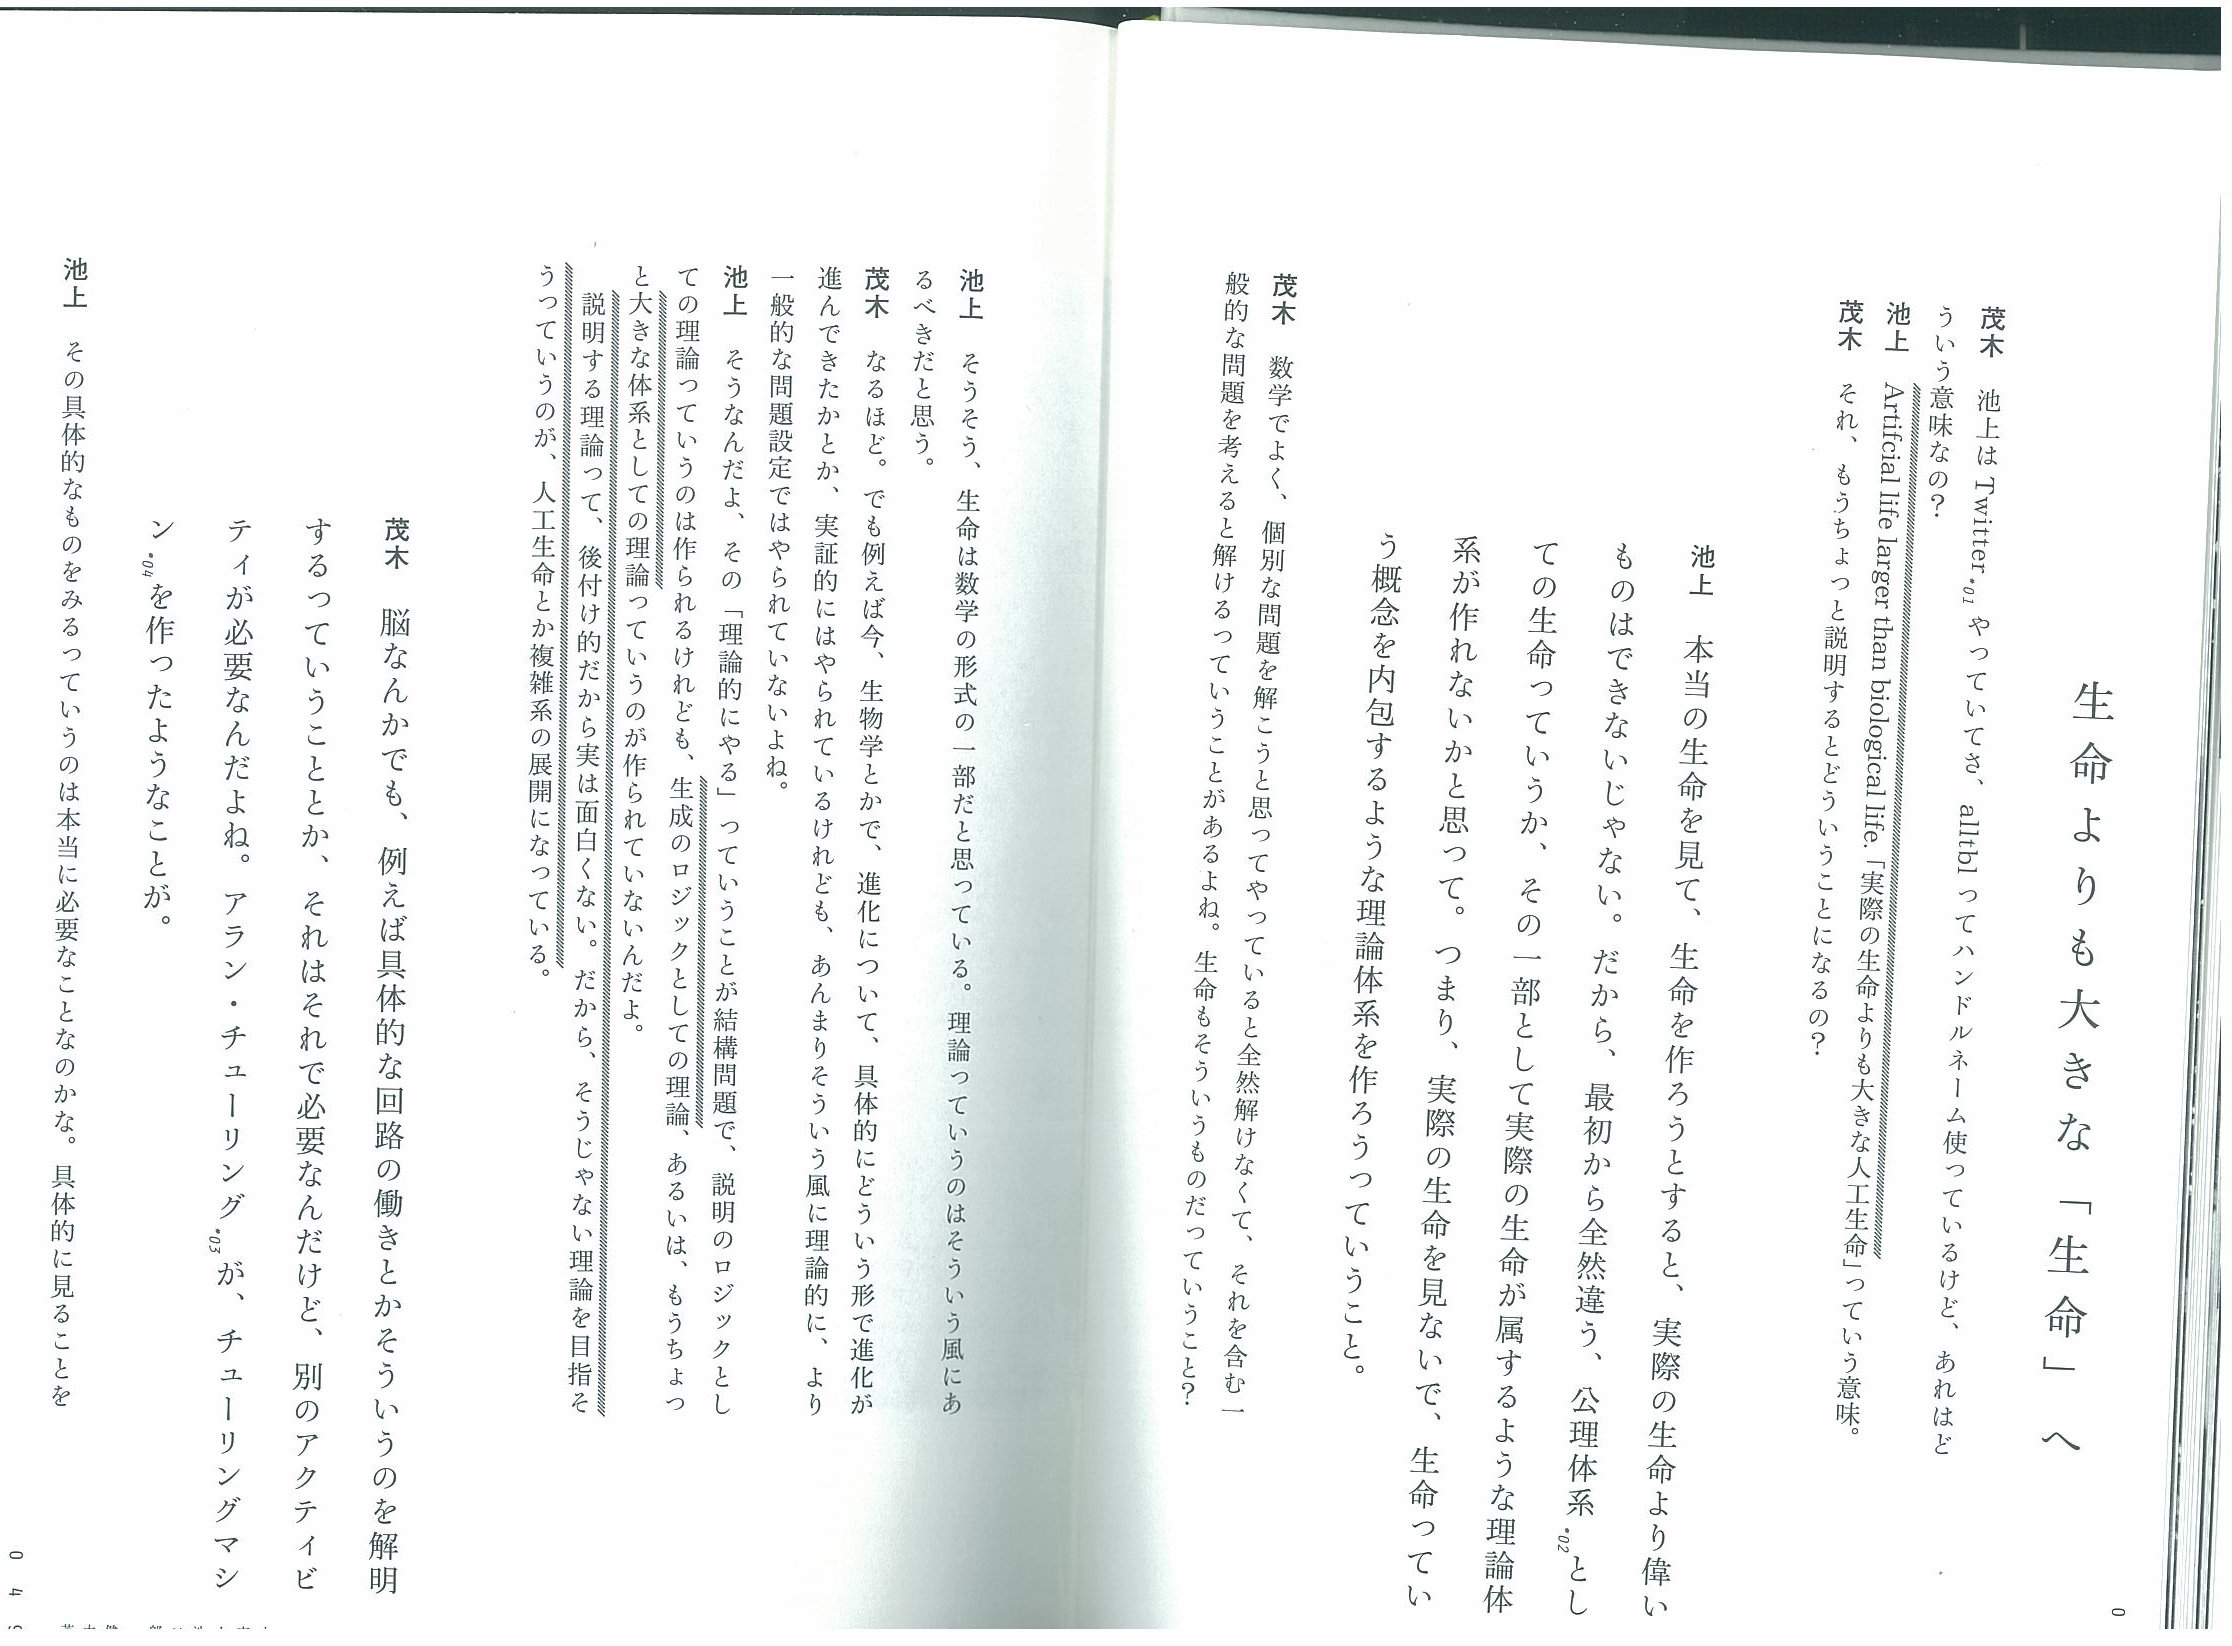 生命よりも大きな「生命」へ
茂木　池上は Twitter*01 やっていてさ、alltbl ってハンドルネーム使っているけど、あれはど
ういう意味なの？
池上　Artifcial life larger than biological life.「実際の生命よりも大きな人工生命」っていう意味。
茂木　それ、もうちょっと説明するとどういうことになるの？
池上　本当の生命を見て、生命を作ろうとすると、実際の生命より偉い
ものはできないじゃない。だから、最初から全然違う、公理体系*02とし
ての生命っていうか、その一部として実際の生命が属するような理論体
系が作れないかと思って。つまり、実際の生命を見ないで、生命ってい
う概念を内包するような理論体系を作ろうっていうこと。
茂木　数学でよく、個別な問題を解こうと思ってやっていると全然解けなくて、それを含む一
般的な問題を考えると解けるっていうことがあるよね。生命もそういうものだっていうこと？
0
池上　そうそう、生命は数学の形式の一部だと思っている。理論っていうのはそういう風にあ
るべきだと思う。
茂木　なるほど。でも例えば今、生物学とかで、進化について、具体的にどういう形で進化が
進んできたかとか、実証的にはやられているけれども、あんまりそういう風に理論的に、より
一般的な問題設定ではやられていないよね。
池上　そうなんだよ、その「理論的にやる」っていうことが結構問題で、説明のロジックとし
ての理論っていうのは作られるけれども、生成のロジックとしての理論、あるいは、もうちょっ
と大きな体系としての理論っていうのが作られていないんだよ。
説明する理論って、後付け的だから実は面白くない。だから、そうじゃない理論を目指そ
うっていうのが、人工生命とか複雑系の展開になっている。
茂木　脳なんかでも、例えば具体的な回路の働きとかそういうのを解明
するっていうこととか、それはそれで必要なんだけど、別のアクティビ
ティが必要なんだよね。アラン・チューリング*03が、チューリングマシ
ン*04を作ったようなことが。
池上　その具体的なものをみるっていうのは本当に必要なことなのかな。具体的に見ることを
0 4